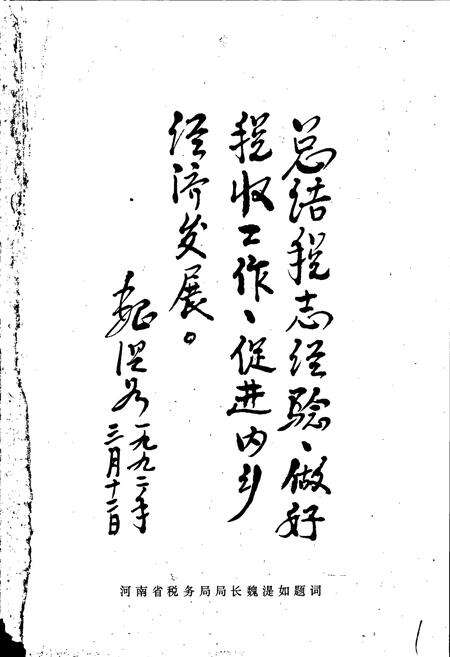 总结税志经验、做好
税收工作、促进内乡
经济发展。
魏湜如
一九九二年
三月十二日
河南省税务局局长魏湜如题词